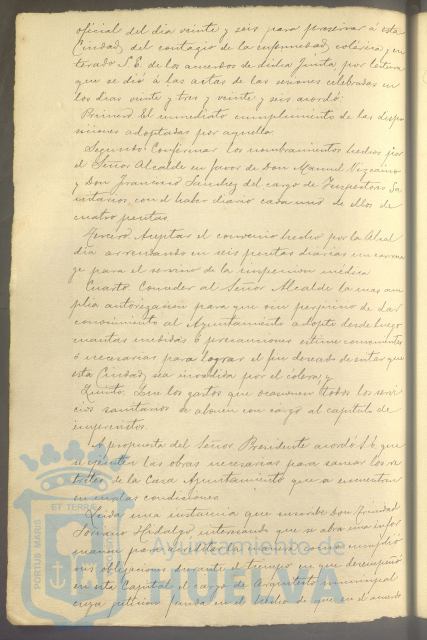 oficial del dia veinte y seis para preservar á esta
Ciudad del contagio de la enfermedad colérica, y en
terado S. E. de los acuerdos de dicha Junta por lectura
que se dió á las actas de las sesiones celebradas en
los dias veinte y tres y veinte y seis acordó:
Primero: El inmediato cumplimiento de las dispo
siciones adoptadas por aquella.
Segundo: Confirmar los nombramientos hechos por
el Señor Alcalde en favor de Don Manuel Vizcaino
y Don Francisco Sanchez del cargo de Inspectores Sa
nitarios con el haber diario cada uno de ellos de
cuatro pesetas.
Tercero: Aceptar el convenio hecho por la Alcal
dia arrendando en seis pesetas diarias un carrua
ge para el servicio de la inspeccion médica
Cuarto: Conceder al Señor Alcalde la mas am
plia autorizacion para que sin perjuicio de dar
conocimiento al Ayuntamiento adopte desde luego
cuantas medidas ó precauciones estime convenientes
ó necesarias para lograr el fin deseado de evitar que
esta Ciudad sea invadida por el cólera; y
Quinto: Que los gastos que ocasionen todos los servi
cios sanitarios se abonen con cargo al capitulo de
imprevistos.
A propuesta del Señor Presidente acordó S. E. que
se ejecuten las obras necesarias para sanear los re
tretes de la Casa Ayuntamiento que se encuentran
en malas condiciones
Leida una instancia que suscribe Don Trinidad
Soriano Hidalgo interesando que se abra una infor
macion para acreditar la manera como cumplió
sus obligaciones durante el tiempo en que desempeñó
en esta Capital el cargo de Arquitecto municipal
cuya peticion funda en el hecho de que en el acuerdo
PORTUS MARIS ET TERRÆ
Ayuntamiento de
HUELVA